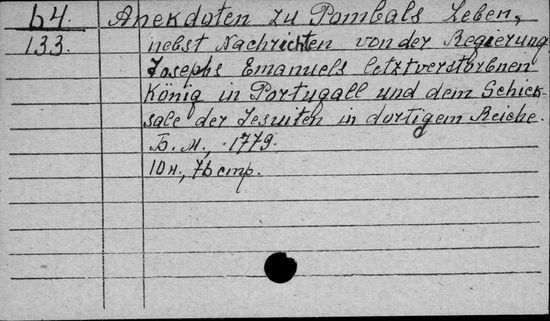 64. Anekdoten zu Pombals Leben,
133. nebst Nachrichten von der Regierung
Josephs Emanuels letztverstorbnen
König in Portugall und dem Schick-
sale der Jesuiten in dortigem Reiche.
Б. м., 1779.
10 н., 76 стр.